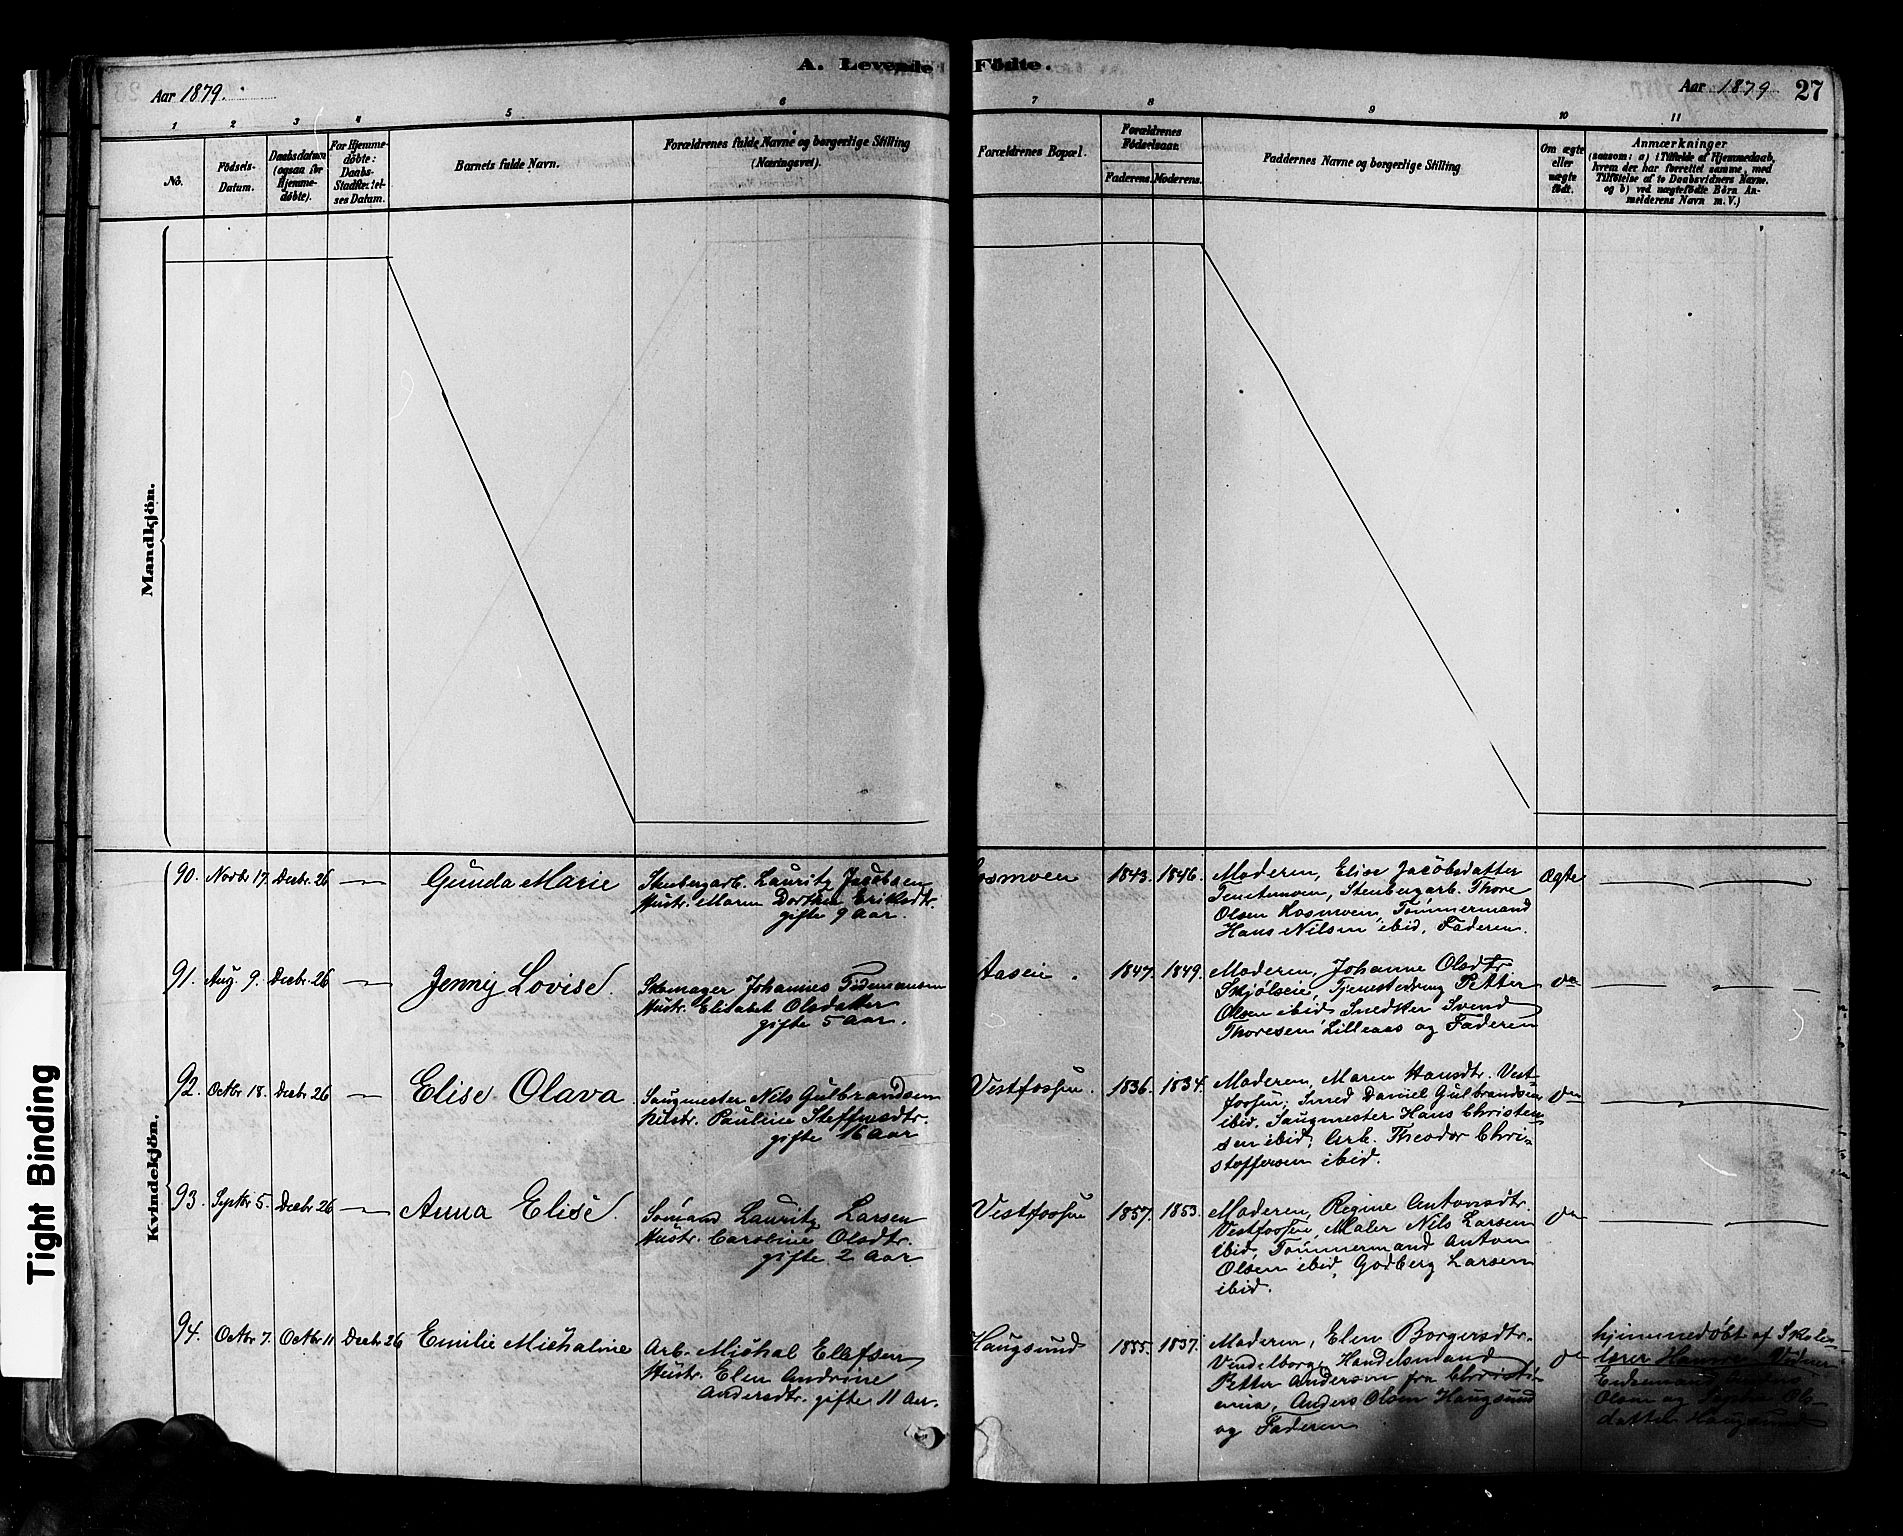 A. Levende Födte.
Aar 1879.
Aar 1879 27
1 2 3 4 5 6 7 8 9 10 11
No.
Födsels-Datum.
Daabsdatum (ogsaa for Hjemme-döbte).
For Hjemme-döbte: Daabs-Stadfæstel-ses Datum.
Barnets fulde Navn.
Forældrenes fulde Navne og borgerlige Stilling (Næringsvei).
Forældrenes Bopæl.
Forældrenes Födselsaar.
Faderens. Moderens.
Faddernes Navne og borgerlige Stilling
Om ægte eller uægte födt.
Anmærkninger
(saasom: a) i Tilfælde af Hjemmedaab,
hvem der har forrettet samme, med
Tilföielse af to Daabsvidners Navne,
og b) ved uægtefödte Börn An-
melderens Navn m. V.)
Mandkjön.
Kvindekjön.
90. Novbr 17. Decbr. 26 — Gunda Marie
Stenbergarb. Lauritz Jacobsen
Hustr. Maren Dorthea Eriksdtr.
gifte 9 Aar.
Kosmoen 1843. 1846.
Moderen, Elise Jacobsdatter
Stenbergarb. Thore
Olsen Kosmoen, Tömmermand
Hans Nilsen ibid, Faderen.
Ægte
91. Aug. 9. Decbr. 26 — Jenny Lovise.
Skomager Johannes
Hustr. Elisabet Olsdatter
gifte 5 Aar.
Aaseie. 1847. 1849.
Moderen, Johanne Olsdtr
Skjölseie, Petter
Olsen ibid, Snedker Svend
Thoresen Lilleaas og Faderen
do
92. Octbr 18. Decbr 26 — Elise Olava
Saugmester Nils Gulbrandsen
Hustr. Pauline Steffensdtr.
gifte 16 Aar
Vestfossen. 1836. 1834.
Moderen, Maren Hansdtr. Vest-
fossen, Smed Daniel Gulbrandsen
ibid, Saugmester Hans Christen-
sen ibid, Arb. Theodor Chri-
stoffersen ibid.
do
93. Septbr 5. Decbr 26 — Anna Elise
Sömand Lauritz Larsen
Hustr. Caroline Olsdtr.
gifte 2 Aar
Vestfossen 1857. 1853.
Moderen, Regine Antonsdtr.
Vestfossen, Maler Nils Larsen
ibid, Tömmermand Anton
Olsen ibid, Godberg Larsen
ibid.
do
94. Octbr 7. Octbr 11 Decbr 26 Emilie Michaline
Arb. Michal Ellefsen
Hustr. Elen Andrine
Andersdtr. gifte 11 Aar.
Haugsund 1855. 1837.
Moderen, Elen Borgersdtr.
Handelsmand
Petter Andersen fra Christi-
ania, Anders Olsen Haugsund
og Faderen
do
hjemmedöbt af Skole-
lærer
Olsen og Ols-
datter Haugsund
Tight Binding